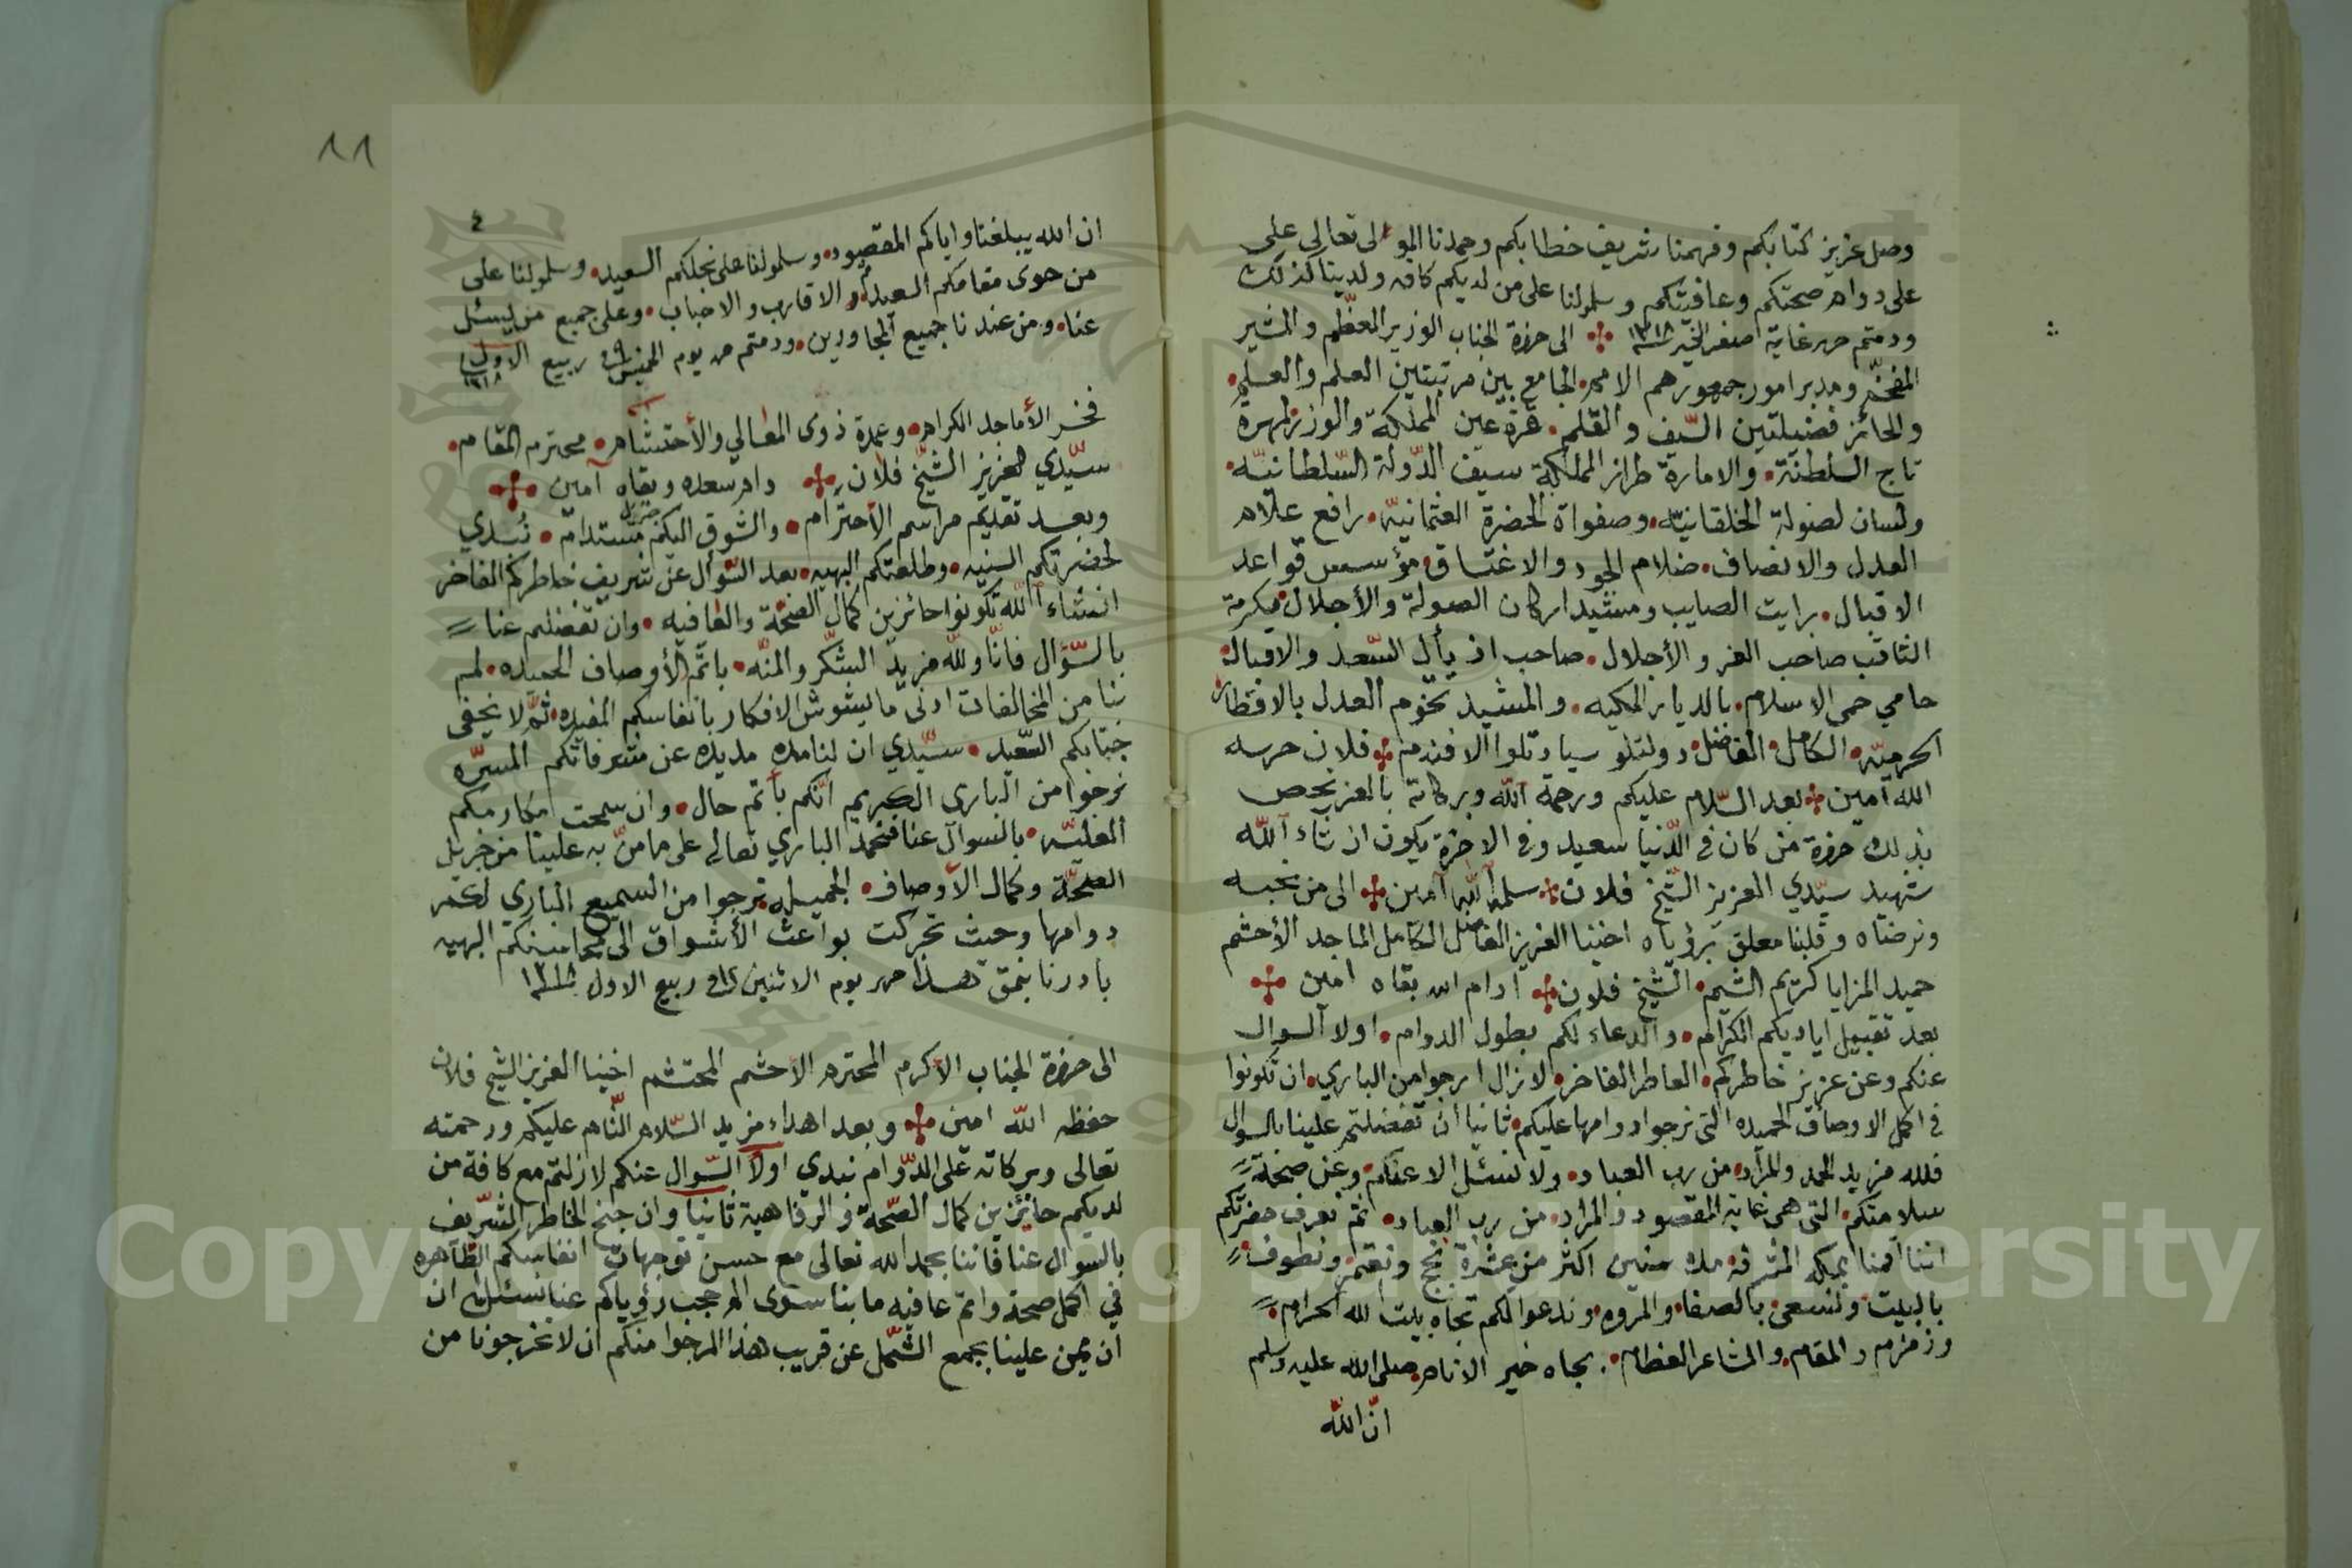 وصل عزيز كتابكم وفهمنا شريف خطابكم وحمدنا المولى تعالى على
على دوام صحتكم وعافيتكم وسلمولنا على من لديكم كافه ولدينا كذلك
ودمتم حرر غاية صفر الخير ١٣١٨ الى حضرة الجناب الوزير المعظم والمشير
المفخم ومدبر امور جمهور هم الامم الجامع بين مرتبتين العلم والعلم
والحائز فضيلتين السيف والقلم قرة عين المملكة والوزر
تاج السلطنة والامارة طراز المملكة سيف الدولة السلطانيه
ولسان لصولة الخلقانيه وصفواة الحضرة العثمانيه رافع علام
العدل والانصاف ضلام الجود والاغتساق مؤسس قواعد
الاقبال برايت الصايب ومشيد اركان الصولة والأجلال مكرمة
الثاقب صاحب العز والأجلال صاحب اذيال السعد والاقبال
حامي حمى الاسلام بالديار المكيه والمشيد تخوم العدل بالاقطار
الحرميه الكامل الفاضل دولتلو سيادتلو الافندم فلان حرسه
الله آمين بعد السلام عليكم ورحمة الله وبركاته بالعز يخص
بذلك حضرة من كان في الدنيا سعيد وفي الاخرة يكون ان شاء الله
شهيد سيدي العزيز الشيخ فلان سلمه الله آمين الى من نحبه
ونرضاه وقلبنا معلق برؤياه اخينا العزيز الفاضل الكامل الماجد الأحشم
حميد المزايا كريم الشيم الشيخ فلان ادام الله بقاه امين
بعد تقبيل اياديكم الكرام والدعاء لكم بطول الدوام اولا السوال
عنكم وعن عزيز خاطركم العاطر الفاخر لا نزال ارجوا من الباري ان تكونوا
في اكمل الاوصاف الحميده التى نرجوا دوامها عليكم ثانيا ان تفضلتم علينا بالسوال
فلله مزيد الحمد والمراد من رب العباد ولا نسئل الا عنكم وعن صحة
سلامتكم التى هى غاية المقصود والمراد من رب العباد ثم نعرف حضرتكم
اننا اقمنا بمكه المشرفه مدة سنين اكثر من عشرة نحج ونعتمر ونطوف
بالبيت ونسعى بالصفا والمروه وندعوا لكم تجاه بيت الله الحرام
وزمزم والمقام والمشاعر العظام بجاه خير الانام صلى الله عليه وسلم
ان الله
١١
٤
ان الله يبلغنا واياكم المقصود وسلمولنا على نجلكم السعيد وسلمولنا على
من حوى مقامكم السعيد والاقارب والاحباب وعلى جميع من يسئل
عنا ومن عندنا جميع المجاورين ودمتم حرر يوم الخميس ٩ ربيع الاول ١٣١٨
فخر الأماجد الكرام وعمدة ذوى المعالي والأحتشام محترم المقام
سيدي العزيز الشيخ فلان دام سعده وبقاه آمين
وبعد تقديم مراسم الأحترام والشوق اليكم مستدام نبدي
لحضرتكم السنيه وطلعتكم البهيه بعد السؤال عن شريف خاطركم الفاخر
انشاء الله تكونوا حائزين كمال الصحة والعافيه وان تفضلتم عنا
بالسؤال فانا ولله مزيد الشكر والمنه باتم الأوصاف الحميده لم
بنا من المخالفات ادنى ما يشوش الافكار بانفاسكم المفيده ثم لا يخفى
جنابكم السعيد سيدي ان لنا مده مديده عن مشرفاتكم المسره
نرجوا من البارى الكريم انكم بأتم حال وان سمحت مكارمكم
العليه بالسوال عنا فنحمد الباري تعالى على ما من به علينا من جزيل
الصحة وكمال الأوصاف الجميله نرجوا من السميع الباري لكم
دوامها وحيث تحركت بواعث الأشواق الى محاسنكم البهيه
بادرنا بنمق هذا حرر يوم الاثنين ربيع الاول ١٣١٨
الى حضرة الجناب الأكرم المحترم الأحشم المحتشم اخينا العزيز الشيخ فلان
حفظه الله امين وبعد اهداء مزيد السلام التام عليكم ورحمته
تعالى وبركاته على الدوام نبدي اولا السوال عنكم لازلتم مع كافة من
لديكم حائزين كمال الصحة والرفاهية ثانيا وان جنح الخاطر الشريف
بالسوال عنا فاننا بحمد الله تعالى مع حسن توجهات انفاسكم الطاهره
في اكمل صحة واتم عافيه ما بنا سوى رؤياكم عنا نسئل ان
ان يمن علينا بجمع الشمل عن قريب هذا المرجوا منكم ان لا تخرجونا من